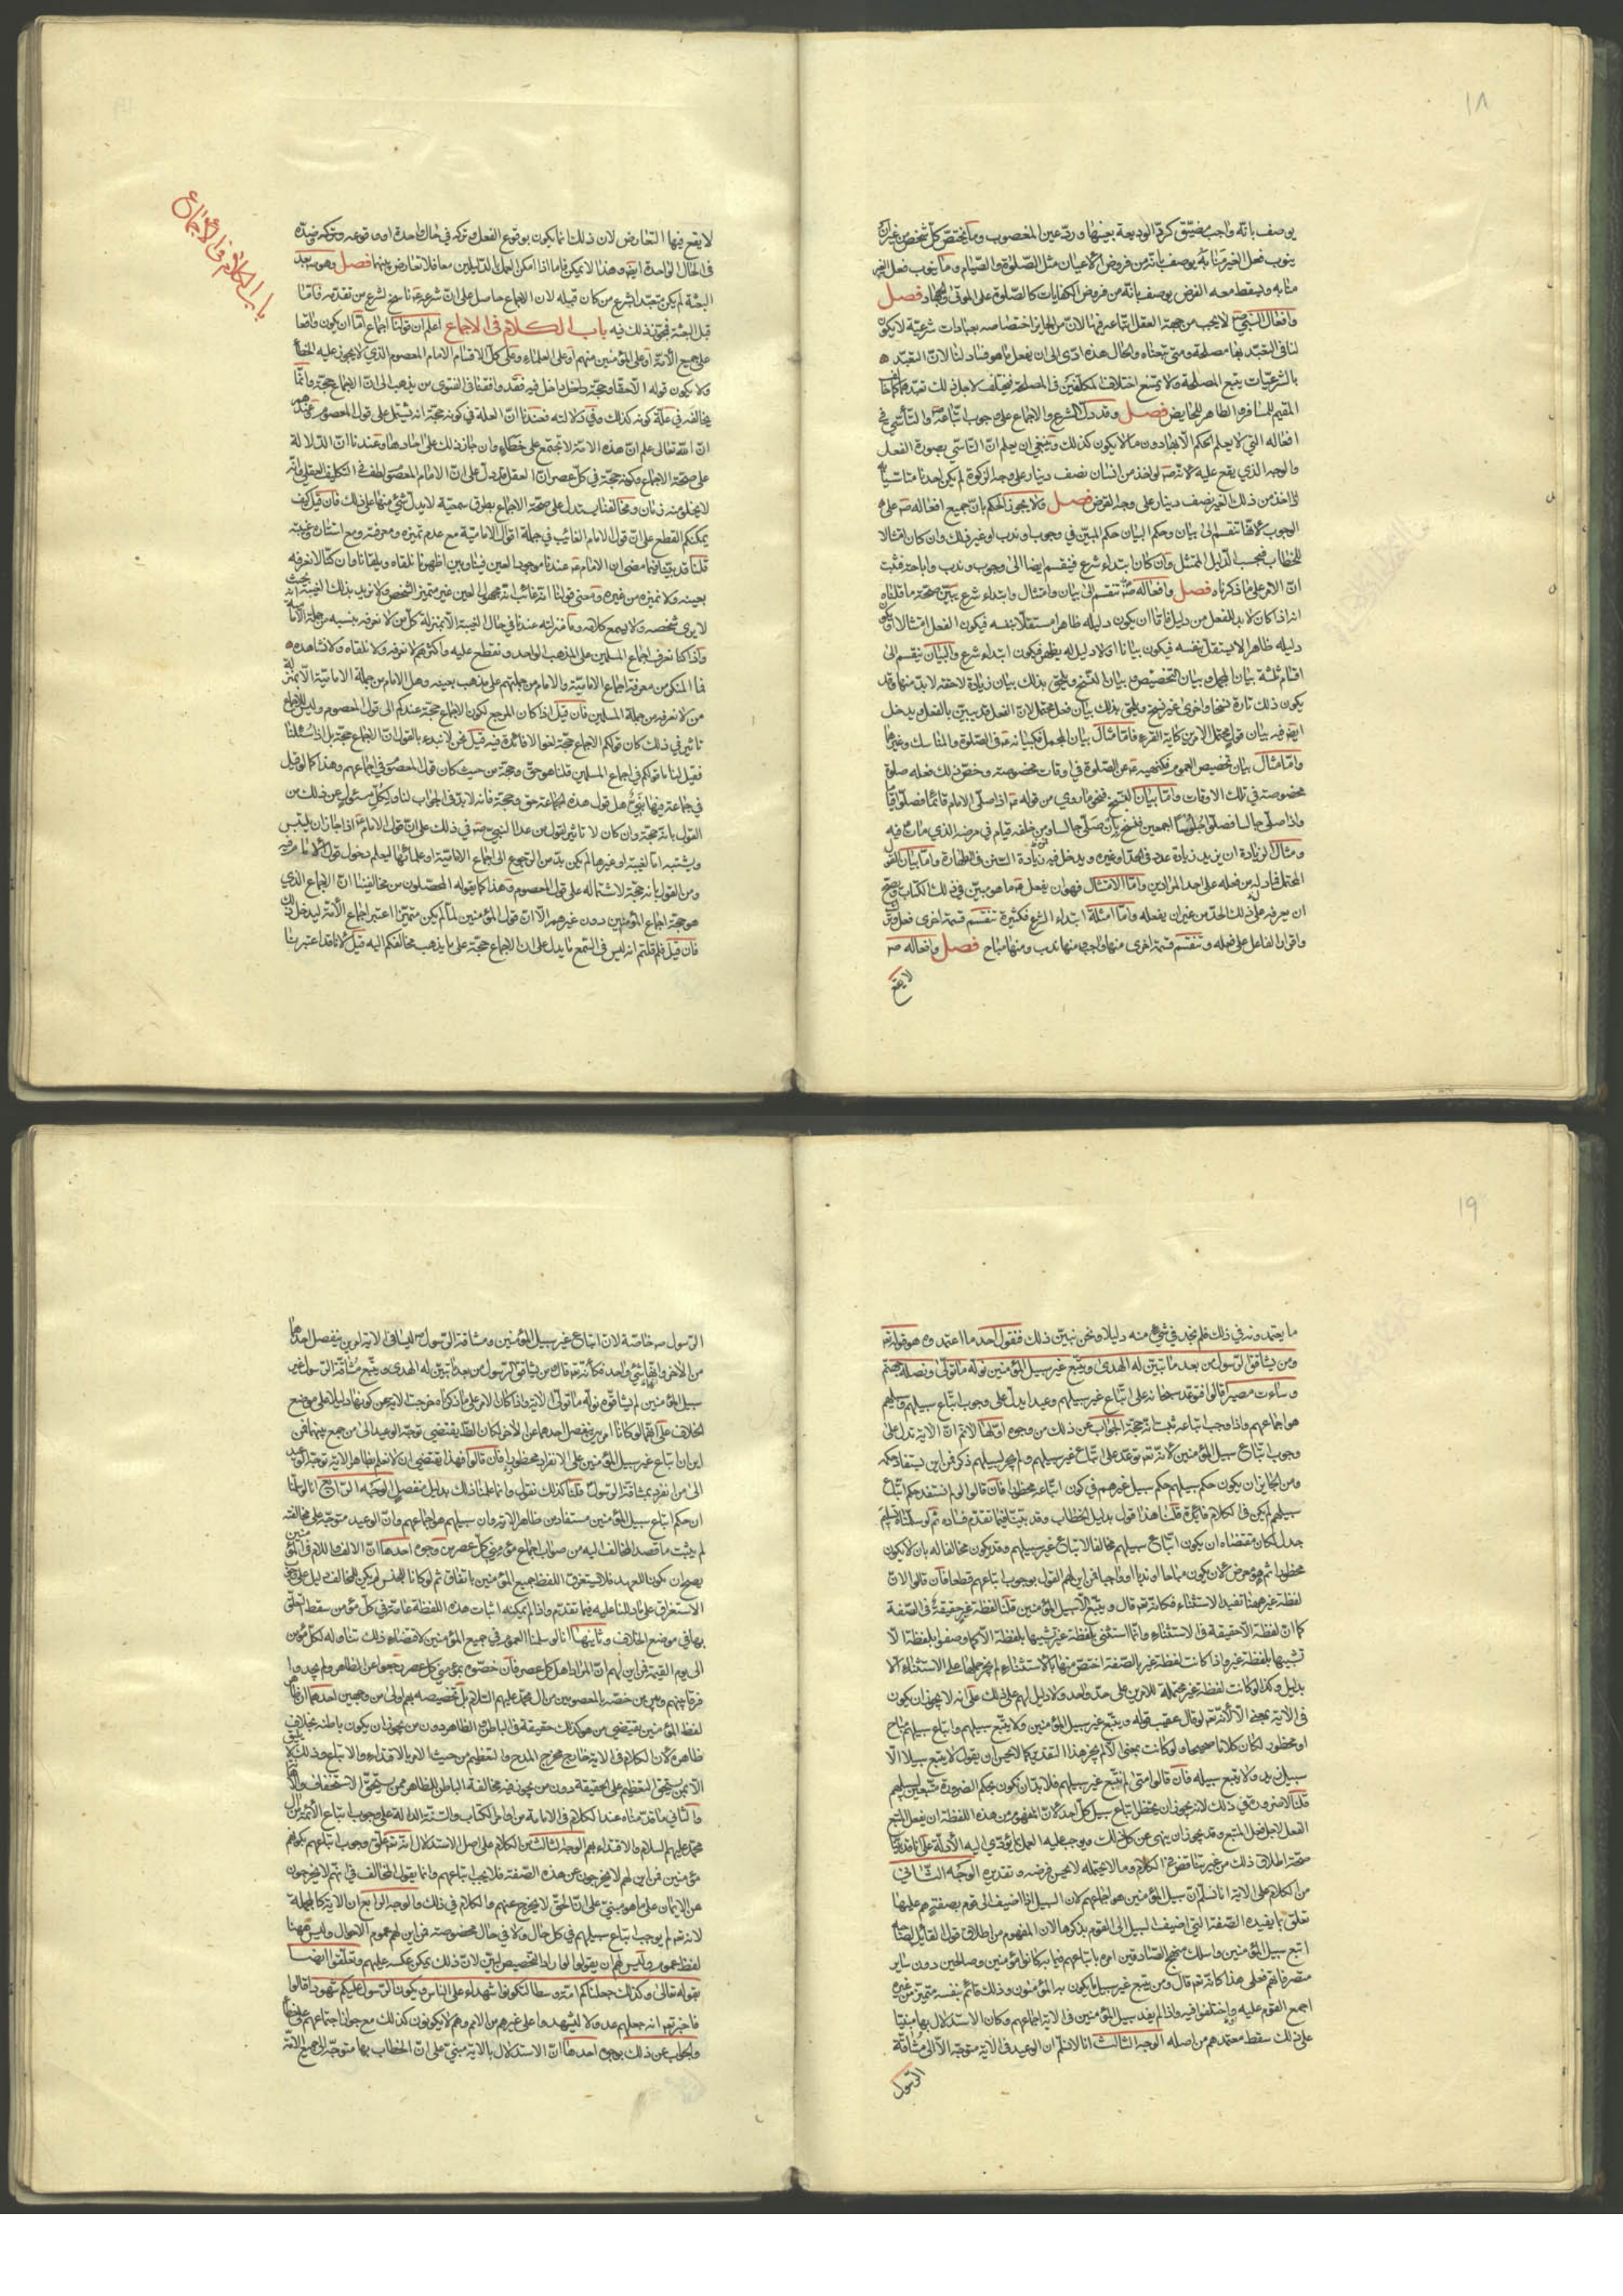 ١٨
يوصف بانه واجب مضيّق كردّ الوديعة بعينها وردّ عين المغصوب وما يختصّ كلّ شخص من غير ان
ينوب فعل الغير منابه يوصف بانه من فروض الاعيان مثل الصّلوة والصّيام وما ينوب فعل الغير
منابه ويسقط معه الفرض يوصف بانه من فروض الكفايات كالصّلوة على الموتى والجهاد فصل
وافعال النبي لا يجب من جهة العقل اتباعه فيها لانّ من الجايز اختصاصه بعبادات شرعيّة لا يكون
لنا في التعبّد بها مصلحة ومتى تبعناه والحال هذه ادّى الى ان يفعل ما هو فساد لنا لانّ التعبّد
بالشرعيّات يتبع المصلحة ولا يمتنع اختلاف المكلّفين في المصلحة فيختلف لاجل ذلك تعبّدهم
المقيم للمسافر والطاهر للحايض فصل وقد دلّ الشرع والاجماع على وجوب اتّباعه والتأسّي في
افعاله التي لا يعلم الحكم الا بها دون ما لا يكون كذلك وينبغي ان يعلم انّ التاسّي بصورة الفعل
والوجه الذي يقع عليه لانه لو اخذ من انسان نصف دينار على وجه الزكوة لم يكن احدنا متاسّيا
اذا اخذ من ذلك الغير نصف دينار على وجه القرض فصل ولا يجوز الحكم بانّ جميع افعاله على
الوجوب لانها تنقسم الى بيان وحكم البيان حكم المبيّن في وجوب او ندب او غير ذلك وان كان امتثالا
للخطاب فبحسب الدّليل الممتثل وان كان ابتداء شرع فينقسم ايضا الى وجوب وندب واباحة فثبت
انّ الامر على ما ذكرناه فصل وافعاله تنقسم الى بيان وامتثال وابتداء شرع يبيّن صحّة ما قلناه
انه اذا كان لابد للفعل من دليل فامّا ان يكون دليله ظاهرا مستقلّا بنفسه فيكون الفعل امتثالا او يكون
دليله ظاهر لا يستقلّ بنفسه فيكون بيانا او لا دليل له يظهر فيكون ابتداء شرع والبيان ينقسم الى
اقسام ثلثة بيان المجمل وبيان التخصيص وبيان النسخ ويلحق بذلك بيان زيادة لاحقة لابد منها وقد
يكون ذلك تارة نسخا واخرى غير نسخ ويلحق بذلك بيان فعل محتمل لانّ الفعل قد يبيّن بالفعل ويدخل
ايض فيه بيان قول محتمل لامرين كاية القرء فامّا مثال بيان المجمل فكبيانه في الصّلوة والمناسك وغيرها
وامّا مثال بيان تخصيص العموم فكنهيه عن الصّلوة في اوقات مخصوصة وخصّ ذلك فعله صلوة
مخصوصة في تلك الاوقات وامّا بيان النسخ فنحو ما روي من قوله اذا صلّى الامام قائما فصلّوا قياما
واذا صلّى جالسا فصلّوا جلوسا اجمعين فنسخ بان صلّى جالسا ومن خلفه قيام في مرضه الذي مات فيه
ومثال الزيادة ان يزيد زيادة عدد في الحدّ او غيره ويدخل فيه زيادة السنن في الطهارة وامّا بيان القول
المحتمل فادلّه من فعله على احد المرادين وامّا الامتثال فهو ان يفعل ما هو مبيّن في ذلك الكتاب ويصحّ
ان يعرفه على ذلك الحدّ من غير ان يفعله وامّا امثلة ابتداء الشرع فكثيرة تنقسم قسمة اخرى فعل وترك
واقرار الفاعل على فعله وتنقسم قسمة اخرى منها واجب ومنها ندب ومنها مباح فصل وافعاله
لا يقع
باب الكلام في الاجماع
لا يقع فيها التعارض لان ذلك انما يكون بوقوع الفعل وتركه في حال واحدة او وقوعه وتركه وضدّه
في الحال الواحدة ايض وهذا لا يمكن فاما اذا امكن العمل بالدّليلين معا فلا تعارض بينهما فصل وهو بعد
البعثة لم يكن متعبّدا بشرع من كان قبله لان الاجماع حاصل على انّ شرعه ناسخ لشرع من تقدّمه فامّا
قبل البعثة فيجوز ذلك فيه باب الكلام في الاجماع اعلم ان قولنا اجماع امّا ان يكون واقعا
على جميع الأمة او على المؤمنين منهم او على العلماء وعلى كلّ الاقسام الامام المعصوم الذي لا يجوز عليه الخطأ
ولا يكون قوله الا حقّا وحجّة داخل فيه فقد وافقنا في الفتوى من يذهب الى انّ الاجماع حجّة وانّما
يخالفه في علّة كونه كذلك وفي دلالته فعندنا انّ العلة في كونه حجّة انه يشتمل على قول المعصوم وعندهم
انّ الله تعالى علم انّ هذه الامة لا تجتمع على خطاء وان جاز ذلك على احادها وعندنا انّ الدّلالة
على صحّة الاجماع وكونه حجّة في كلّ عصر انّ العقل قد دلّ على انّ الامام المعصوم لطف في التكليف العقلي وانّه
لا يخلو منه زمان ومخالفنا يستدل على صحّة الاجماع بطرق سمعيّة لا يدلّ شيء منها على ذلك فان قيل كيف
يمكنكم القطع على انّ قول الامام الغائب في جملة اقوال الاماميّة مع عدم تميزه ومعرفته ومع استتاره وغيبته
قلنا قد بيّنا فيما مضى ان الامام عندنا موجود العين فينا وبين اظهرنا نلقاه ويلقانا وان كنا لا نعرفه
بعينه ولا نميزه من غيره ومعنى قولنا انه غائب انه مجهول العين غير متميز الشخص ولا نريد بذلك الغيبة بحيث انه
لا يرى شخصه ولا يسمع كلامه وما منزلته عندنا في حال الغيبة الا بمنزلة كلّ من لا نعرفه بنسبه من جملة الامامية
واذا كنا نعرف اجماع المسلمين على المذهب الواحد ونقطع عليه واكثرهم لا نعرفه ولا نلقاه ولا نشاهده
فما المنكر من معرفة اجماع الاماميّة والامام من جملتهم على مذهب بعينه وهل الامام من جملة الاماميّة الا بمنزلة
من لا نعرفه من جملة المسلمين فان قيل اذا كان المرجع لكون الاجماع حجّة عندكم الى قول المعصوم وليس للاجماع
تاثير في ذلك كان قولكم الاجماع حجّة لغوا لا فائدة فيه قيل نحن لا نبدء بالقول انّ الاجماع حجّة بل اذا سئلنا
فقيل لنا ما قولكم في اجماع المسلمين قلنا هو حقّ وحجة من حيث كان قول المعصوم في اجماعهم وهذا كما لو قيل
في جماعة فيها نبيّ هل قول هذه الجماعة حق وحجة فانه لابدّ في الجواب لنا ولكلّ مسئول عن ذلك من
القول بانه حجّة وان كان لا تاثير لقول من عدا النبي في ذلك على انّ قول الامام اذا جاز ان يلتبس
ويشتبه امّا لغيبة او غيرها لم يكن بدّ من الرّجوع الى اجماع الاماميّة او علمائها ليعلم دخول قول الامام فيه
ومن القول بانه حجّة لاشتماله على قول المعصوم وهذا كما يقوله المحصّلون من مخالفينا انّ الاجماع الذي
هو حجّة اجماع المؤمنين دون غيرهم الا انّ قول المؤمنين لمّا لم يكن متميّزا اعتبر اجماع الأمة ليدخل ذلك
فان قيل فلم قلتم انه ليس في السّمع ما يدل على انّ الاجماع حجّة على ما يذهب مخالفكم اليه قيل لانا قد اعتبرنا
١٩
ما يعتمدونه في ذلك فلم نجد في شيء منه دليلا ونحن نبيّن ذلك فنقول احد ما اعتمدوه هو قوله
ومن يشاقق الرّسول من بعد ما تبيّن له الهدى ويتّبع غير سبيل المؤمنين نولّه ما تولّى ونصله جهنّم
وساءت مصيرا قالوا فتوعّد سبحانه على اتّباع غير سبيلهم وعيدا يدلّ على وجوب اتّباع سبيلهم وسبيلهم
هو اجماعهم واذا وجب اتباعه ثبت انه حجّة الجواب عن ذلك من وجوه اوّلها لانم انّ الاية تدل على
وجوب اتّباع سبيل المؤمنين لانه توعّد على اتّباع غير سبيلهم ولم يجر لسبيلهم ذكر فمن اين يستفاد حكمه
ومن الجايز ان يكون حكم سبيلهم حكم سبيل غيرهم في كون اتّباعه محظورا فان قالوا لو لم نستفد حكم اتباع
سبيلهم لم يكن في الكلام فائدة قلنا هذا قول بدليل الخطاب وقد بيّنا فيما تقدّم فساده ثم لو سلّمناه
جدل لكان مقتضاه ان يكون اتّباع سبيلهم مخالفا لاتباع غير سبيلهم وقد يكون مخالفا له بان لا يكون
محظورا ثم هو معرض لان يكون مباحا او ندبا او واجبا فمن اين لهم القول بوجوب اتباعهم قطعا فان قالوا لانّ
لفظة غير ههنا تفيد الاستثناء فكانه قال ويتّبع الا سبيل المؤمنين قلنا لفظة غير حقيقة في الصّفة
كما انّ لفظة الا حقيقة في الاستثناء وانّما استثنى بلفظة غير تشبيها بلفظة الا كما وصفوا بلفظة الا
تشبيها بلفظة غير واذا كانت لفظة غير بالصّفة اختصّ منها بالاستثناء لم يجز حملها على الاستثناء الا
بدليل وكذا لو كانت لفظة غير محتملة للامرين على حدّ واحد ولا دليل لهم على ذلك على انه لا يجوز ان يكون
في الاية بمعنى الا لانه لو قال عقيب قوله ويتّبع غير سبيل المؤمنين ولا يتّبع سبيلهم واتباع سبيلهم مباح
او محظور لكان كلاما صحيحا ولو كانت بمعنى الا لم يجز هذا التقدير كما لا يحسن ان يقول لا يتبع سبيلا الا
سبيل زيد ولا يتبع سبيله فان قالوا متى لم نتّبع غير سبيلهم فلا بد ان نكون بحكم الضرورة متّبعين لسبيلهم
قلنا لا ضرورة في ذلك لانه يجوز ان يحظر اتباع سبيل كلّ احد لانّ المفهوم من هذه اللفظة ان يفعل المتّبع
الفعل لاجل فعل المتبع وقد يجوز ان ينهى عن كل ذلك ويوجب عليه العمل بما يؤدّي اليه الأدلّة على انا قد بيّنا
صحّة اطلاق ذلك من غير تناقض في الكلام وما لا يحتمله لا يحسن فرضه وتقديره الوجه الثاني
من الكلام على الاية انا نسلّم انّ سبيل المؤمنين هو اجماعهم لان السبيل اذا اضيف الى قوم بصفة هم عليها
تعلّق بما يفيده الصّفة التي اضيف السبيل الى القوم بذكرها لان المفهوم من اطلاق قول القائل لصاحبه
اتبع سبيل المؤمنين واسلك منهج الصّادقين امره باتباعهم فيما به كانوا مؤمنين وصالحين دون ساير
متصرفاتهم فعلى هذا كانه قال ومن يتبع غير سبيل ما يكون به المؤمنون وذلك قائم بنفسه متميّز من غيره
اجمع القوم عليه او اختلفوا فيه واذا لم يفد سبيل المؤمنين في الاية اجماعهم وكان الاستدلال بها مبنيّا
على ذلك سقط معتمدهم من اصله الوجه الثالث انا لا نسلّم ان الوعيد في الاية متوجّه الا الى مشاقّة
الرّسول
الرّسول خاصّة لانّ اتباع غير سبيل المؤمنين ومشاقة الرّسول ليسا في الاية امرين ينفصل احدهما
من الاخر وانهما شيء واحد فكأنه قال من يشاقق الرّسول من بعد ما تبيّن له الهدى ويتّبع مشاقة الرّسول غير
سبيل المؤمنين لم يشاقوه نولّه ما تولّى الاية واذا كان الامر على ما ذكرناه خرجت الاية من كونها دليلا على موضع
الخلاف على انّهما لو كانا امرين ينفصل احدهما عن الاخر لكان الظّ يقتضي توجّه الوعيد الى من جمع بينهما فمن
اين ان اتباع غير سبيل المؤمنين على الانفراد محظور فان قالوا فهذا يقتضي ان لا نعلم بظاهر الاية توجّه الوعيد
الى من انفرد بمشاقة الرّسول قلنا كذلك نقول وانما علمنا ذلك بدليل منفصل الوجه الرّابع انا لو سلّمنا
ان حكم اتباع سبيل المؤمنين مستفاد من ظاهر الاية وان سبيلهم هو اجماعهم وانّ الوعيد متوجّه على مخالفته
لم يثبت ما قصد المخالف اليه من صواب اجماع مؤمني كلّ عصر من وجوه احدها انّ الالف واللام في المؤمنين
يصح ان يكون للعهد فلا يستغرق اللفظ جميع المؤمنين باتفاق ثم لو كانا للجنس لم يكن للمخالف دليل على
الاستغراق على ما دللنا عليه فيما تقدّم واذا لم يمكنه اثبات هذه اللفظة عامّة في كلّ مؤمن سقط التعلّق
بها في موضع الخلاف وثانيها انا لو سلمنا العموم في جميع المؤمنين لاقتضاء ذلك تناوله لكلّ مؤمن
الى يوم القيمة فمن اين لهم انّ المراد اهل كل عصر فان خصّوه بمؤمني كل عصر رجعوا عن الظاهر ولم يجدوا
فرقا بينهم وبين من خصّه بالمعصومين من ال محمد عليهم السلام بل تخصيصه بهم اولى من وجهين احدهما ان
لفظ المؤمنين يقتضي من هو كذلك حقيقة في الباطن والظاهر دون من يجوز ان يكون باطنه بخلاف
ظاهره لان الكلام في الاية خارج مخرج المدح والتعظيم من حيث الامر بالاقتداء والاتباع وذلك لا يليق
الا بمن يستحق التعظيم على الحقيقة دون من يجوز فيه مخالفة الباطن للظاهر ممن يستحقّ الاستخفاف والاهانة
والثاني ما قدّمناه عند الكلام في الامامة من اوامر الكتاب والسّنة الدالة على وجوب اتباع الأئمة من ال
محمد عليهم السلام والاقتداء بهم الوجه الثالث من الكلام على اصل الاستدلال انه علّق وجوب اتباعهم بكونهم
مؤمنين فمن اين لهم لا يخرجون عن هذه الصّفة فلا يجب اتباعهم وانما يقول المخالف في انّهم لا يخرجون
عن الايمان على ما هو مبنيّ على انّ الحق لا يخرج عنهم والكلام في ذلك والوجه الرابع ان الاية كالمجملة
لانه لم يوجب اتباع سبيلهم في كل حال ولا في حال مخصوصة فمن اين لهم عموم الاحوال وليس ههنا
لفظ عموم وليس لهم ان يقولوا لو اراد التخصيص لبيّن لانّ ذلك يمكن عكسه عليهم وتعلّقوا ايضا
بقوله تعالى وكذلك جعلناكم امّة وسطا لتكونوا شهداء على الناس ويكون الرّسول عليكم شهيدا قالوا
فاخبر انه جعلهم عدولا ليشهدوا على غيرهم من الامم وهم لا يكونون كذلك مع جواز اجتماعهم على خطأ
والجواب عن ذلك بوجوه احدها انّ الاستدلال بالاية مبنيّ على انّ الخطاب بها متوجّه الى جميع الامّة